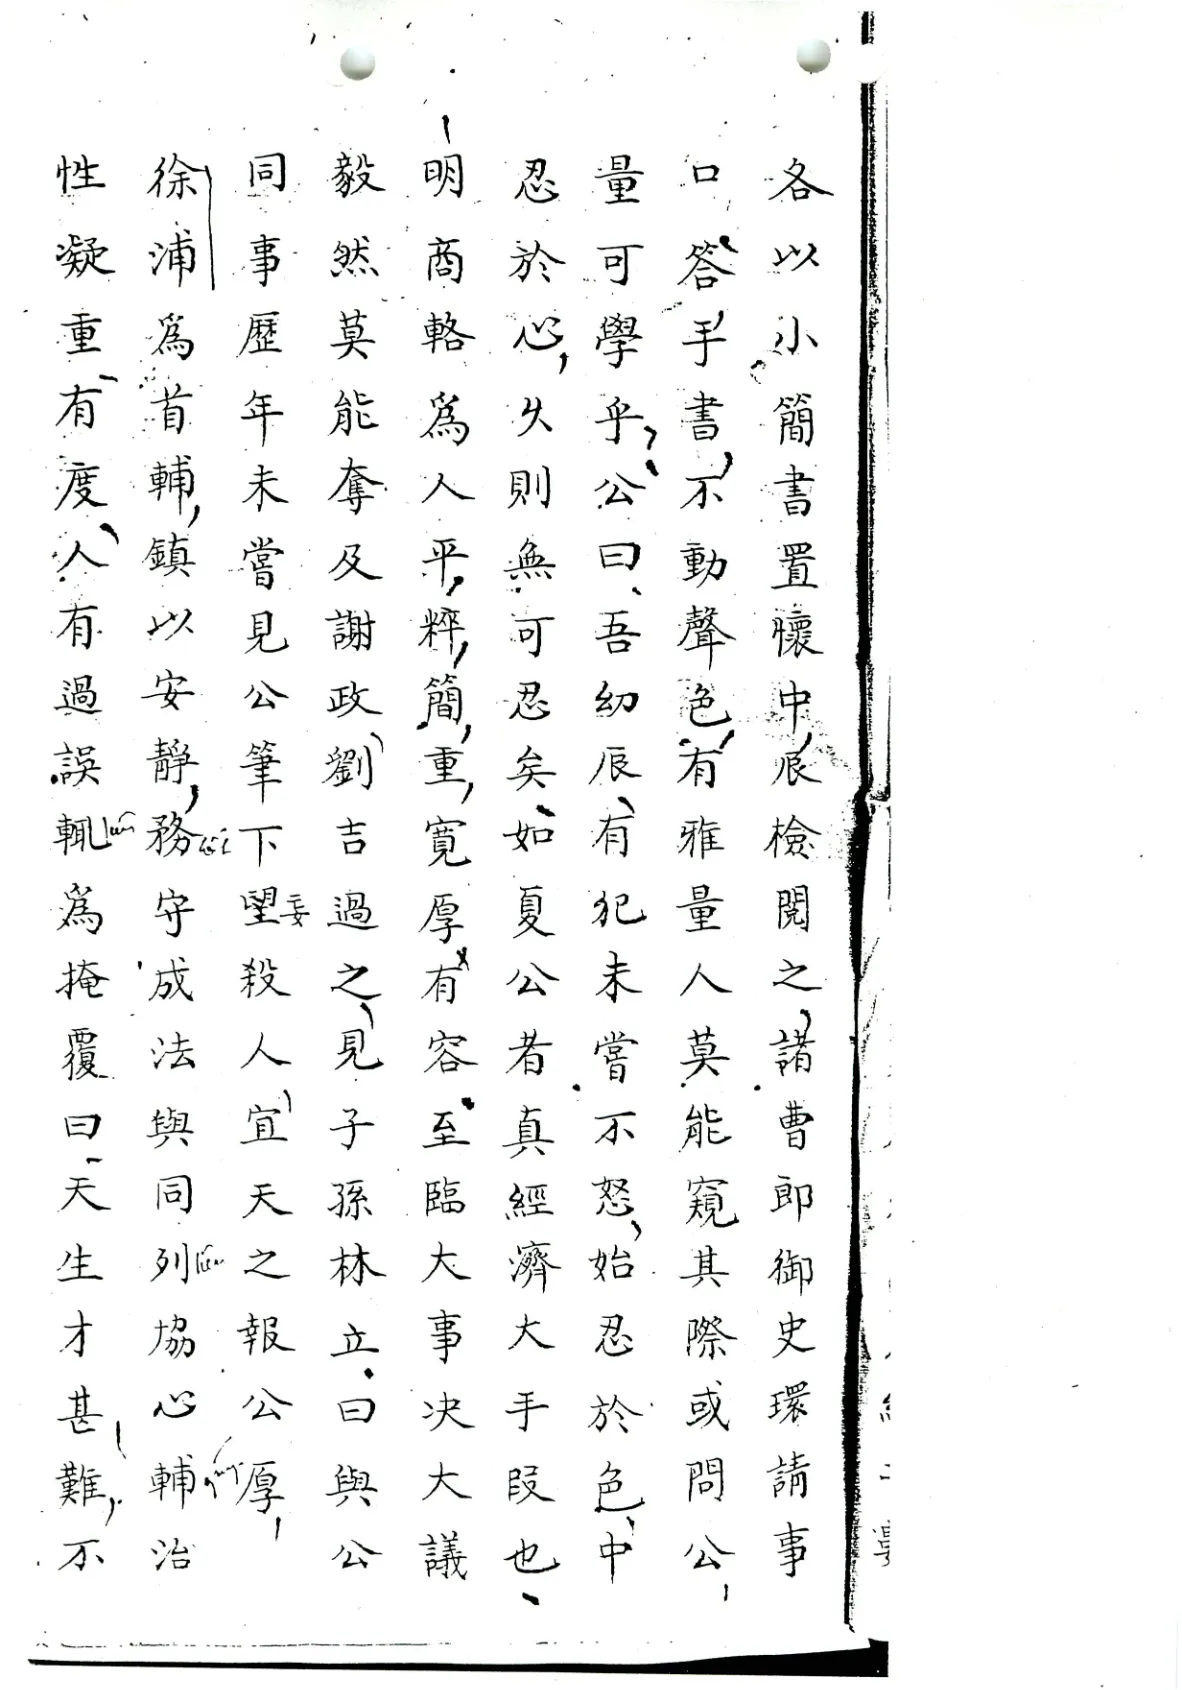 各以小簡書置懷中辰檢閱之諸曹郎御史環請事
口答手書不動聲色有雅量人莫能窺其際或問公
量可學乎公曰吾幼辰有犯未嘗不怒始忍於色中
忍於心久則無可忍矣如夏公者真經濟大手段也
明商輅爲人平粹簡重寬厚有容至臨大事决大議
毅然莫能奪及謝政劉吉過之見子孫林立曰與公
同事歷年未嘗見公筆下望妄殺人宜天之報公厚
徐浦爲首輔鎮以安靜務守成法與同列協心輔治
性凝重有度人有過誤輒爲掩覆曰天生才甚難不